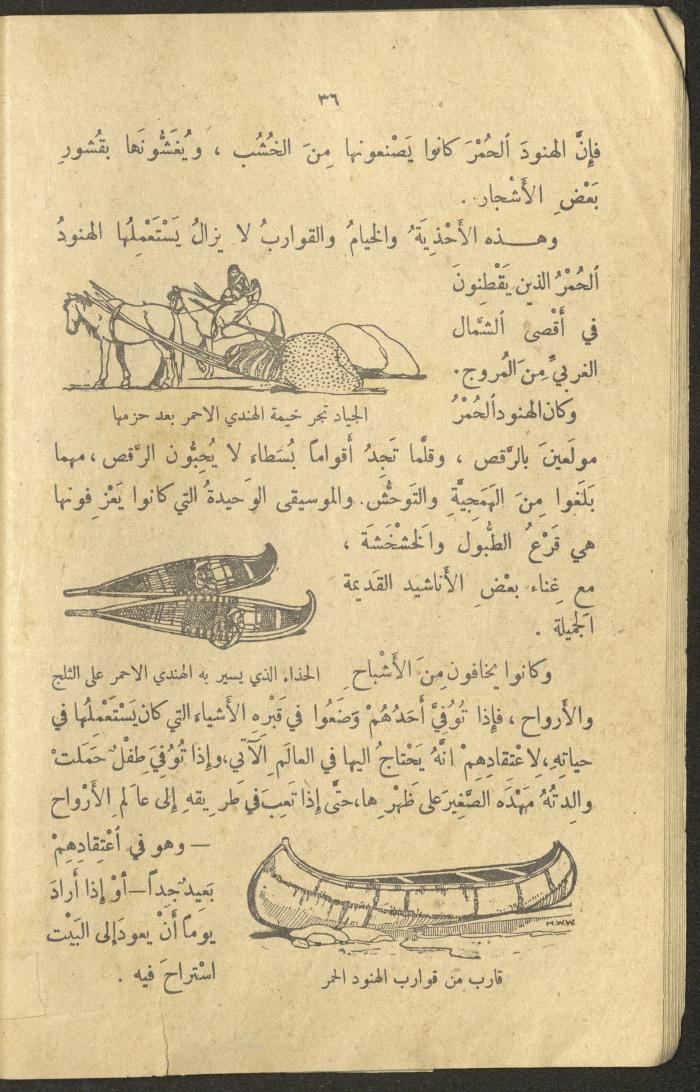 ٣٦
فإنَّ الهنودَ ٱلحُمْرَ كانوا يَصْنعونها مِنَ الخُشُب ، ويُغَشُّونَها بقُشورِ
بَعْضِ الأَشْجار .
وهـذه الأَحْذِيَةُ والخيامُ والقواربُ لا يزالُ يَسْتَعْمِلُها الهنودُ
ٱلحُمْرُ الذين يَقْطِنونَ
في أَقْصى ٱلشَّمال
الغربيِّ مِنَ المُروج .
وكان الهنودُ ٱلحُمْرُ
الجياد تجر خيمة الهندي الاحمر بعد حزمها
مولَعينَ بالرَّقص ، وقلَّما تَجِدُ أَقواماً بُسَطاءَ لا يُحِبُّون الرَّقص ، مهما
بَلَغوا مِنَ الهَمَجِيَّةِ والتَوحُّش . والموسيقى الوَحيدةُ التي كانوا يَعْزِفونها
هي قَرْعُ الطبُول والخَشْخَشَة ،
مع غِناء بعْضِ الأَناشيد القَديمة
الجَميلة .
وكانوا يخافون مِنَ الأَشْباحِ
الحذاء الذي يسير به الهندي الاحمر على الثلج
والأَرواح ، فإذا تُوُفِيَّ أَحَدُهُمْ وَضَعُوا في قَبْرِه الأَشياء التي كان يَسْتَعْمِلُها في
حياتِهِ ، لِاعْتقادِهِمْ انَّهُ يَحْتاجُ اليها في العالَمِ الآتي ، وإذا تُوُفيَ طِفْلٌ حَمَلتْ
والِدتُهُ مَهْدَه الصَّغِيرَ على ظَهْرِها ، حتَّى إِذَا تَعِبَ في طَريقهِ إلى عالَمِ الأَرْواح
— وهو في ٱعْتِقادِهِمْ
بَعيدٌ جِداً — أَوْ إِذا أَرادَ
يوماً أَنْ يعودَ إلى البَيْت
اسْتراحَ فيه .
H.W.W
قارب من قوارب الهنود الحمر